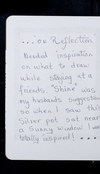 ... on Reflection
Needed inspiration
on what to draw
while staying at a
friends. 'Shine' was
my husbands suggestion
so when I saw this
Silver pot sat near
a Sunny window I was
totally inspired!